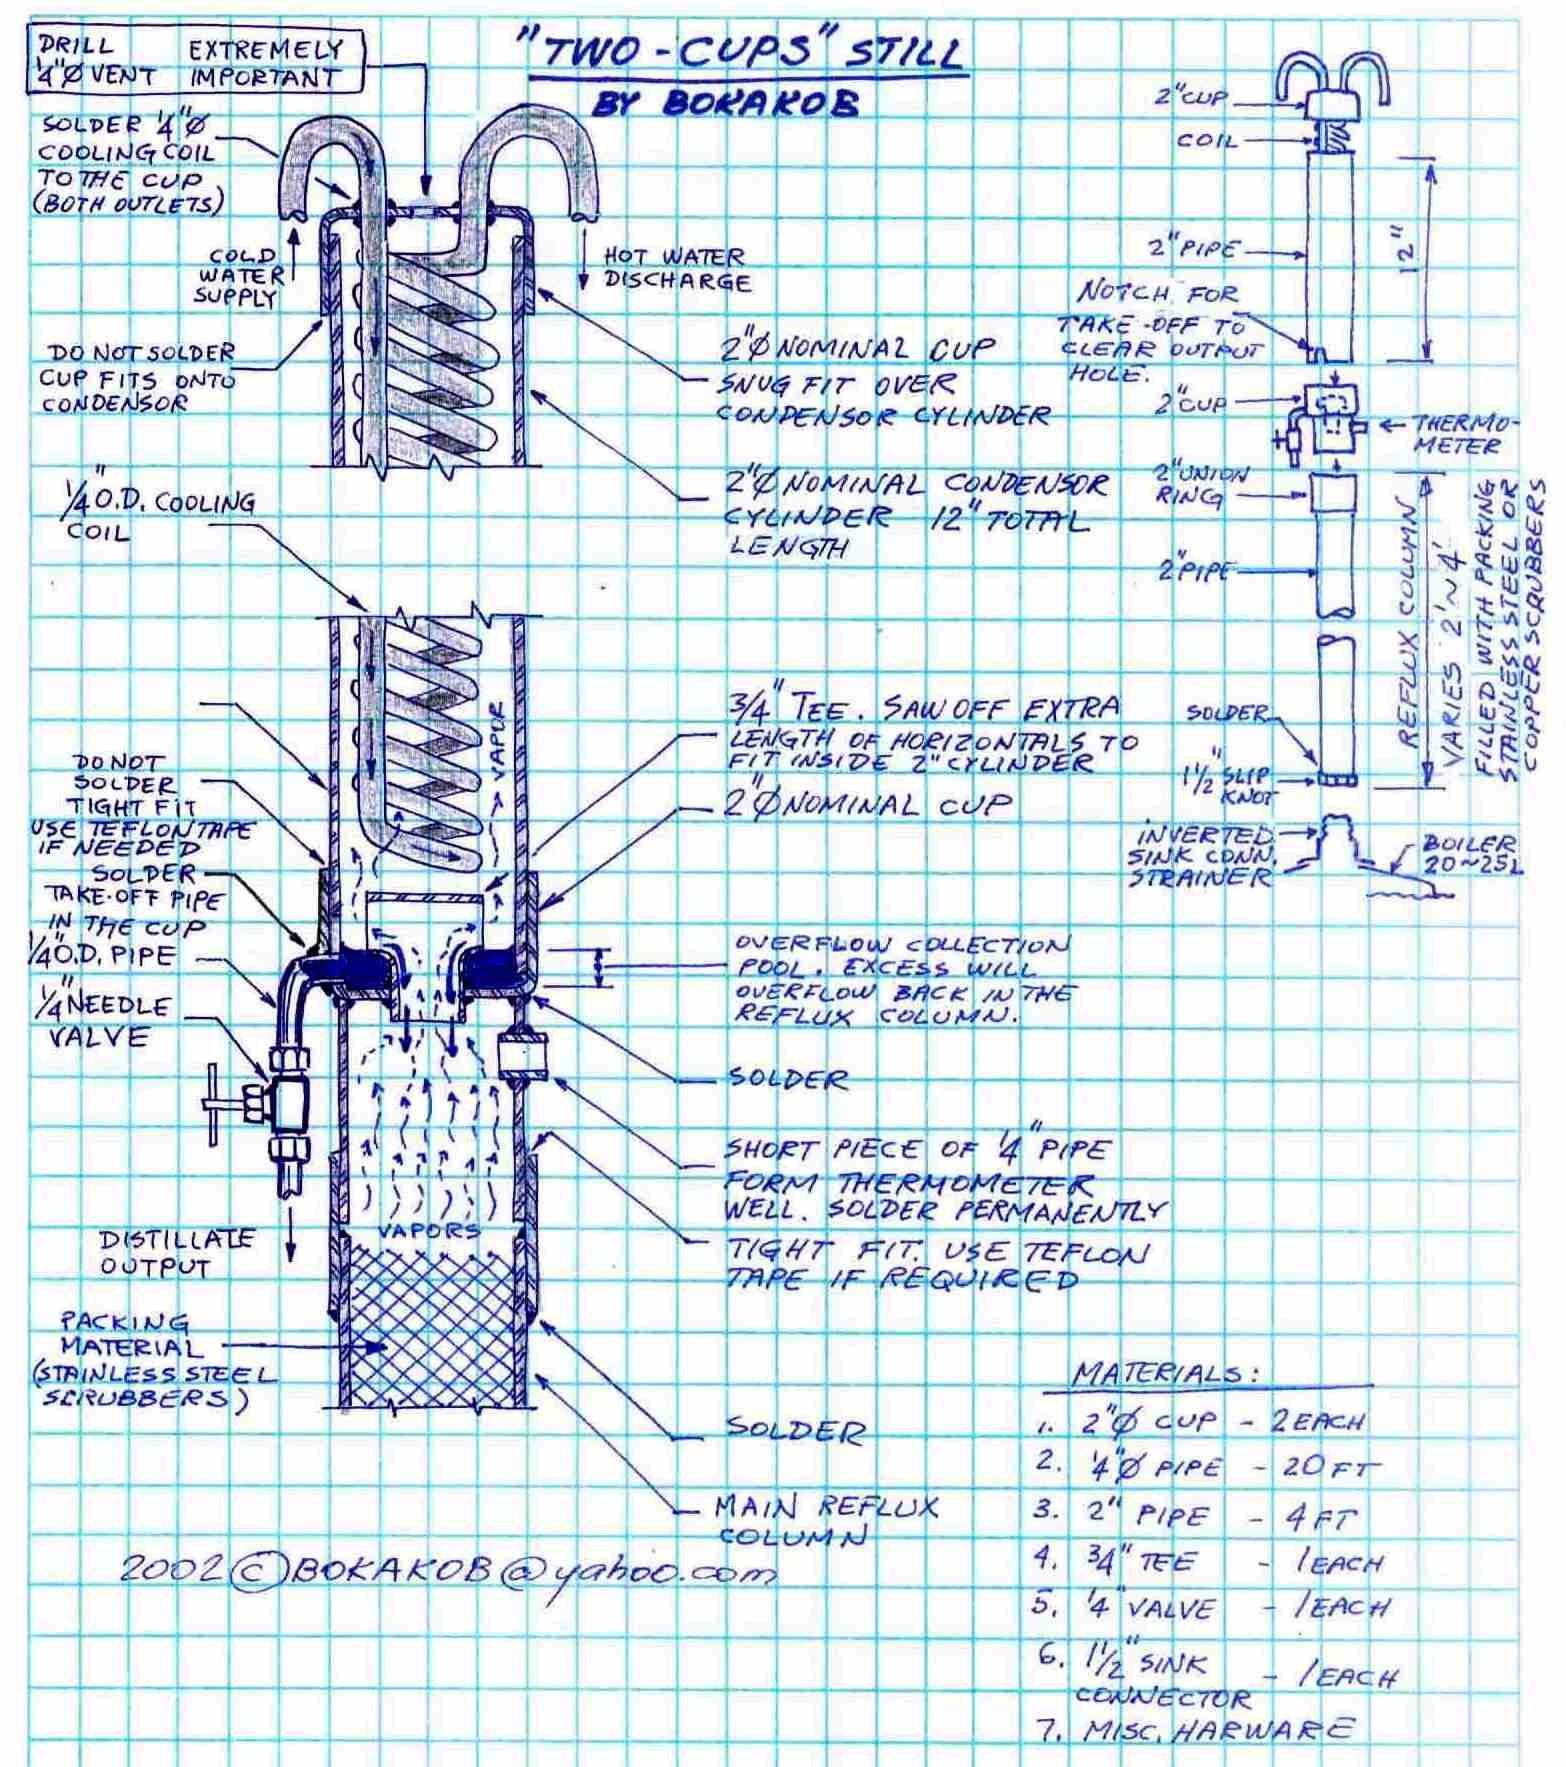 "TWO-CUPS" STILL
BY BOKAKOB
DRILL EXTREMELY
1/4"Ø VENT IMPORTANT
SOLDER 1/4"Ø
COOLING COIL
TO THE CUP
(BOTH OUTLETS)
COLD
WATER
SUPPLY
HOT WATER
DISCHARGE
DO NOT SOLDER
CUP FITS ONTO
CONDENSOR
2"Ø NOMINAL CUP
SNUG FIT OVER
CONDENSOR CYLINDER
1/4" O.D. COOLING
COIL
2"Ø NOMINAL CONDENSOR
CYLINDER 12" TOTAL
LENGTH
VAPOR
3/4" TEE. SAW OFF EXTRA
LENGTH OF HORIZONTALS TO
FIT INSIDE 2" CYLINDER
2"Ø NOMINAL CUP
DO NOT
SOLDER
TIGHT FIT
USE TEFLON TAPE
IF NEEDED
SOLDER
TAKE-OFF PIPE
IN THE CUP
1/4" O.D. PIPE
1/4" NEEDLE
VALVE
OVERFLOW COLLECTION
POOL. EXCESS WILL
OVERFLOW BACK IN THE
REFLUX COLUMN.
SOLDER
SHORT PIECE OF 1/4" PIPE
FORM THERMOMETER
WELL. SOLDER PERMANENTLY
TIGHT FIT. USE TEFLON
TAPE IF REQUIRED
VAPORS
DISTILLATE
OUTPUT
PACKING
MATERIAL
(STAINLESS STEEL
SCRUBBERS)
SOLDER
MAIN REFLUX
COLUMN
2002 © BOKAKOB@yahoo.com
2" CUP
COIL
2" PIPE
12"
NOTCH FOR
TAKE-OFF TO
CLEAR OUTPUT
HOLE.
2" CUP
THERMO-
METER
2" UNION
RING
2" PIPE
REFLUX COLUMN
VARIES 2'~4'
FILLED WITH PACKING
STAINLESS STEEL OR
COPPER SCRUBBERS
SOLDER
1 1/2" SLIP
KNOT
INVERTED
SINK CONN.
STRAINER
BOILER
20~25L
MATERIALS:
1. 2"Ø CUP - 2 EACH
2. 1/4"Ø PIPE - 20 FT
3. 2" PIPE - 4 FT
4. 3/4" TEE - 1 EACH
5. 1/4" VALVE - 1 EACH
6. 1 1/2" SINK
CONNECTOR - 1 EACH
7. MISC. HARWARE